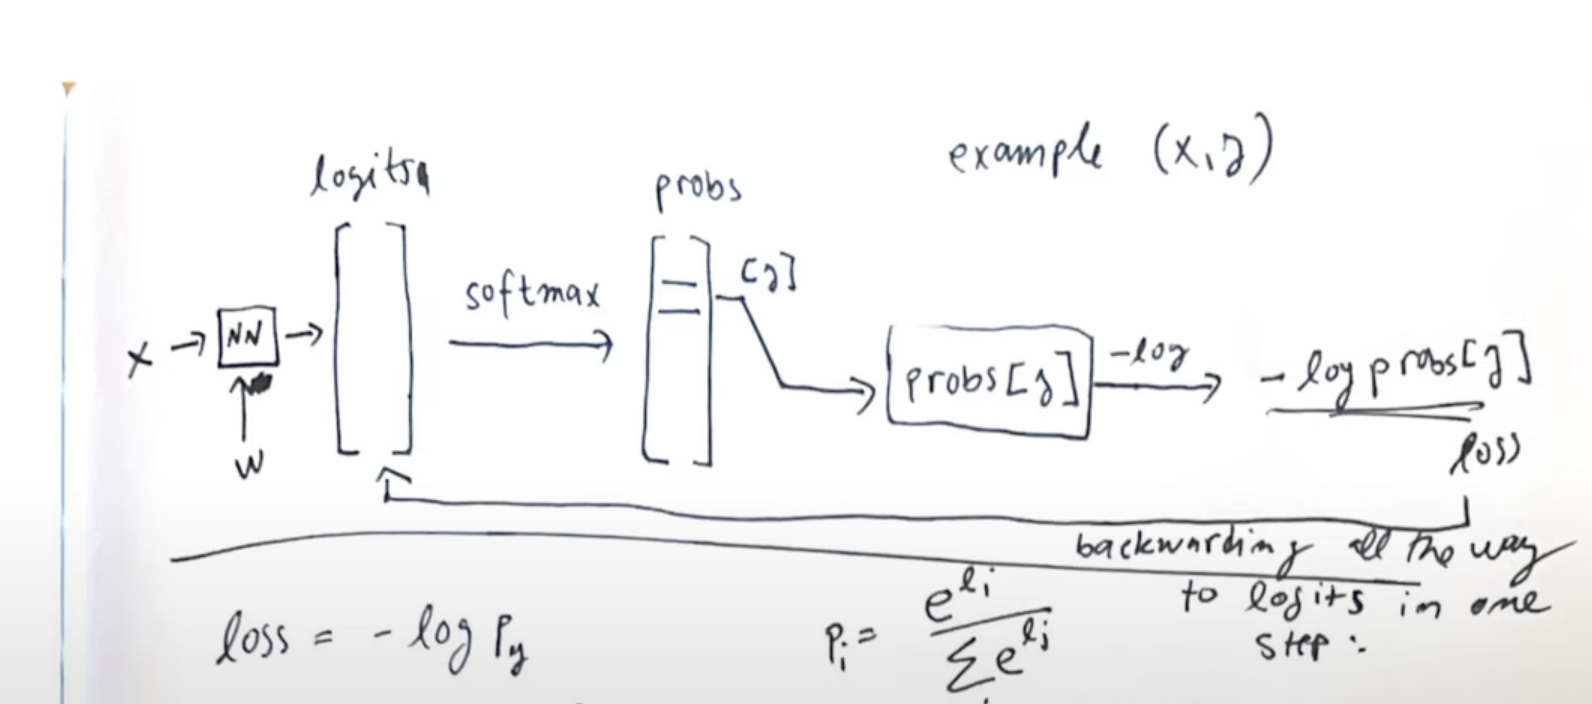 example (x,y)
logits
probs
softmax
[y]
x → NN →
w
probs[y]
-log
- log probs[y]
loss
backwarding all the way
to logits in one
step:
loss = - log p_y
p_i = e^{l_i} / ∑ e^{l_j}